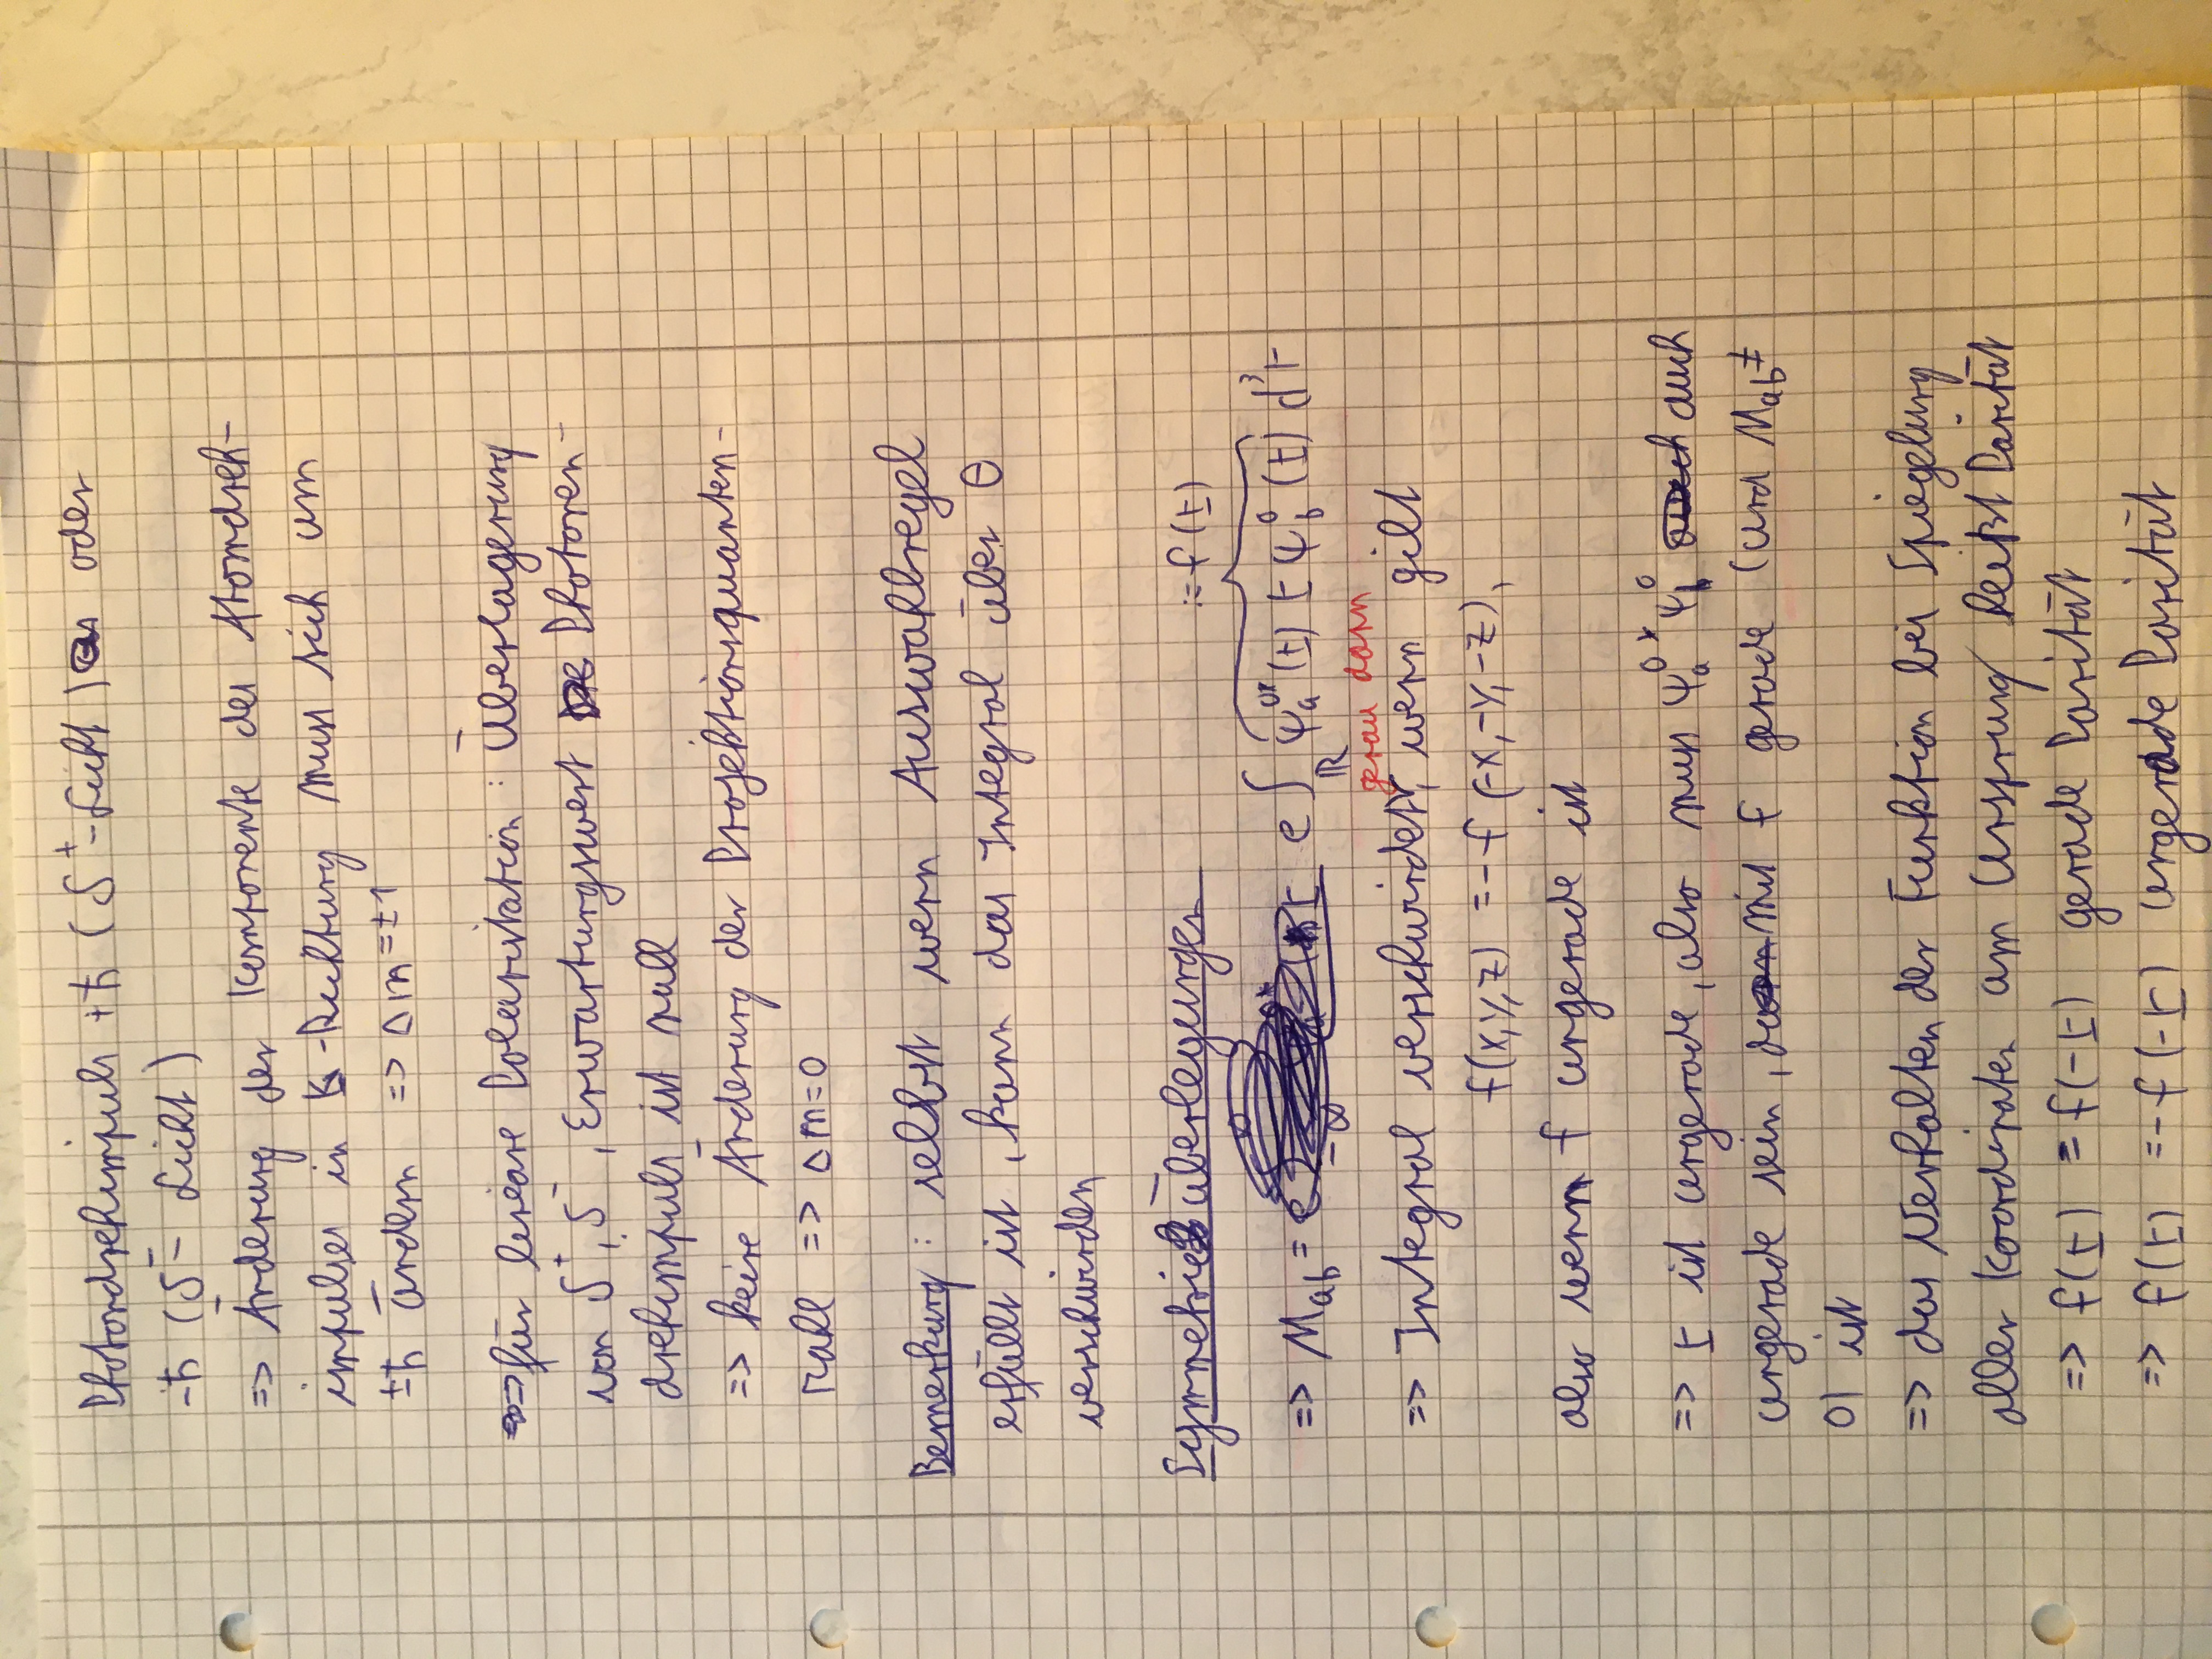 Photondrehimpuls +ħ (σ⁺-Licht) oder
-ħ (σ⁻- Licht)
=> Änderung der Komponente des Atomdreh-
impulses in k-Richtung muss sich um
±ħ ändern => Δm=±1
=> für lineare Polarisation : Überlagerung
von σ⁺, σ⁻, Erwartungswert Photonen-
drehimpuls ist null
=> keine Änderung der Projektionsquanten-
zahl => Δm=0
Bemerkung : selbst wenn Auswahlregel
erfüllt ist, kann das Integral über θ
verschwinden
Symmetrieüberlegungen
:= f(r)
=> M_ab = e ∫_ℝ ψ_a^0*(r) r ψ_b^0(r) d³r
genau dann
=> Integral verschwindet, wenn gilt
f(x,y,z) = -f(-x,-y,-z),
also wenn f ungerade ist
=> r ist ungerade, also muss ψ_a^0* ψ_b^0 auch
ungerade sein, damit f gerade (und M_ab ≠
0) ist
=> das Verhalten der Funktion bei Spiegelung
aller Koordinaten am Ursprung heißt Parität
=> f(r) = f(-r) gerade Parität
=> f(r) = -f(-r) ungerade Parität